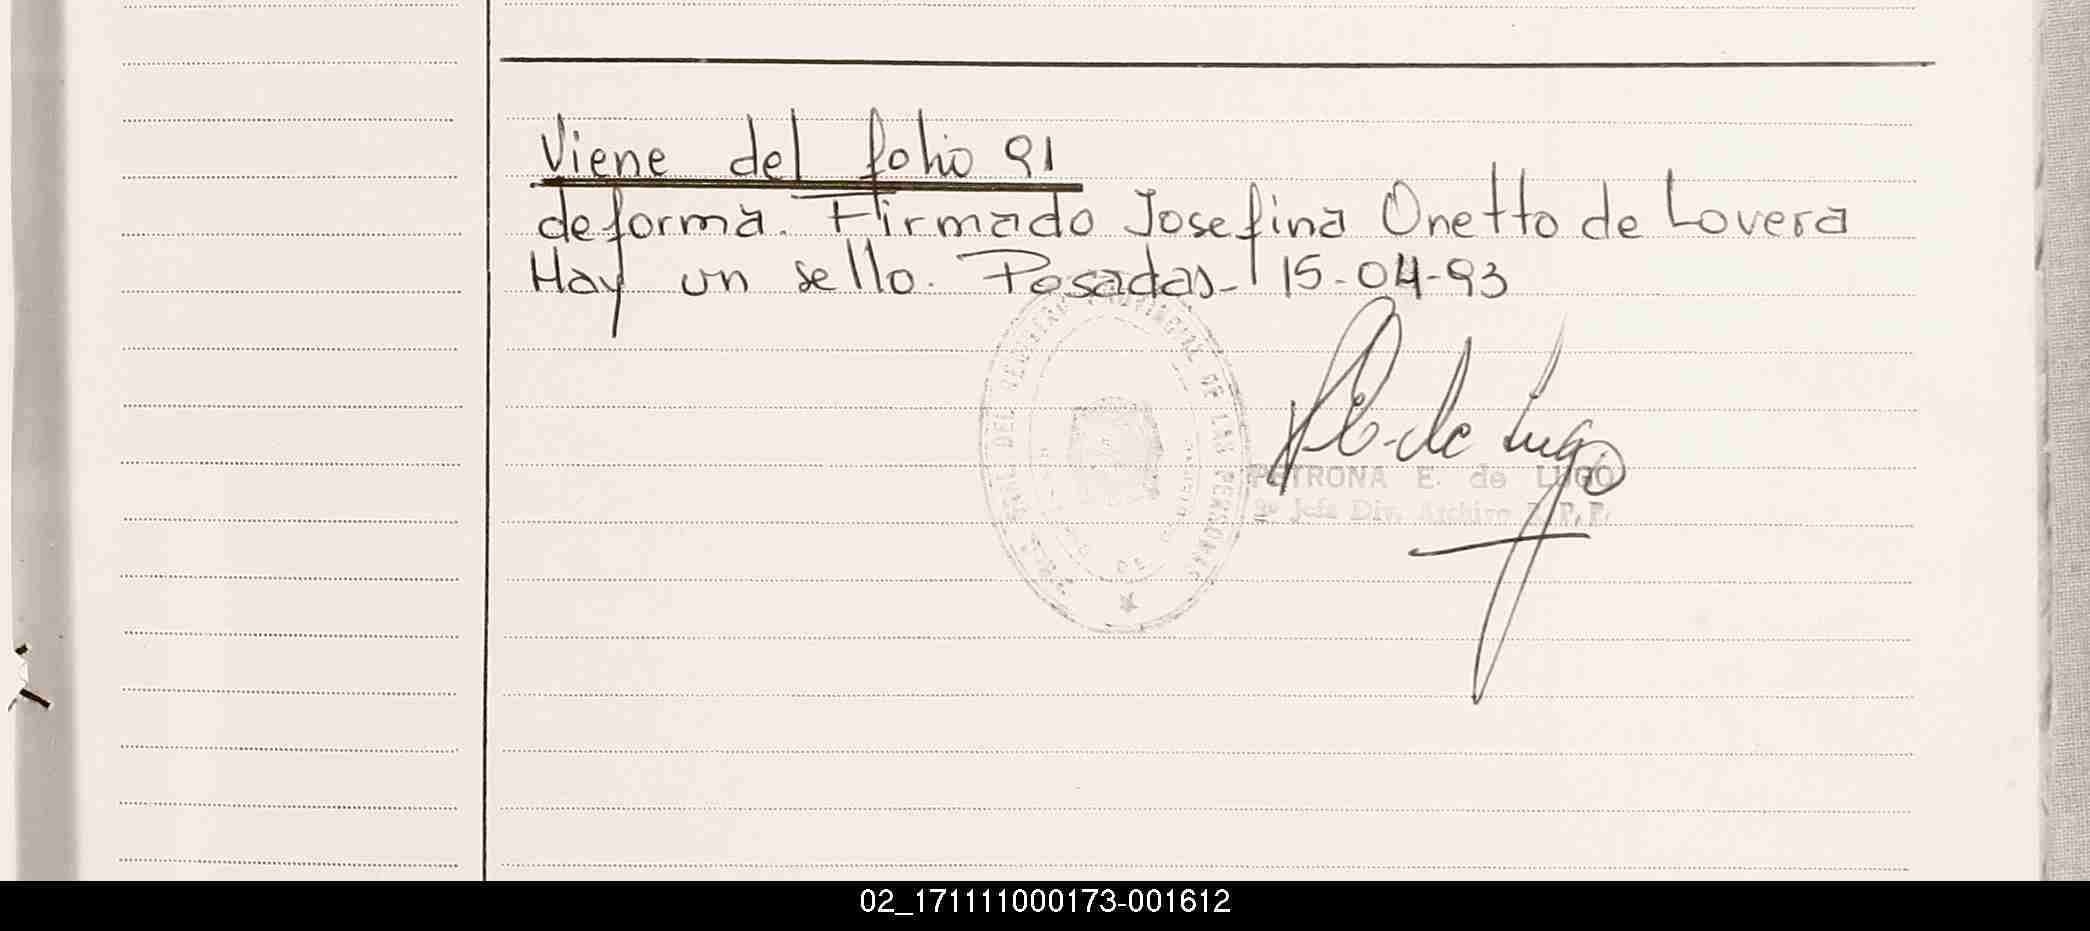 Viene del folio 91
de forma. Firmado Josefina Onetto de Lovera
Hay un sello. Posadas- 15-04-93
DEL PROVINCIAL DE LAS PERSONAS
DE
P E. de Lugo
PETRONA E. de LUGO
Jefa Div. Archivo R. P. P.
02_171111000173-001612